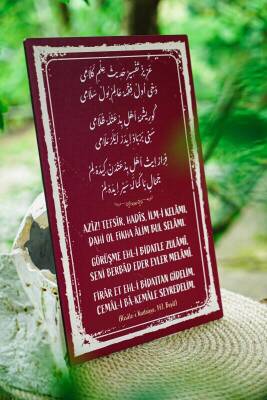 عزیز تفسیر حدیث علم کلامی
دخی اول فقه عالم بول سلامی
گوریشمه اهل بدعتله ظلامی
سنی برباد ایدر ایلر ملامی
فرار ایت اهل بدعتدن گیده‌لم
جمال باکماله سیر ایده‌لم
AZÎZ! TEFSÎR, HADÎS, İLM-İ KELÂMI,
DAHİ OL FIKHA ÂLİM BUL SELÂMI.
GÖRÜŞME EHL-İ BİD'ATLE ZULÂMI,
SENİ BERBÂD EDER EYLER MELÂMÎ.
FİRÂR ET EHL-İ BİD'ATTAN GİDELİM,
CEMÂL-İ BÂ KEMÂLE SEYREDELİM.